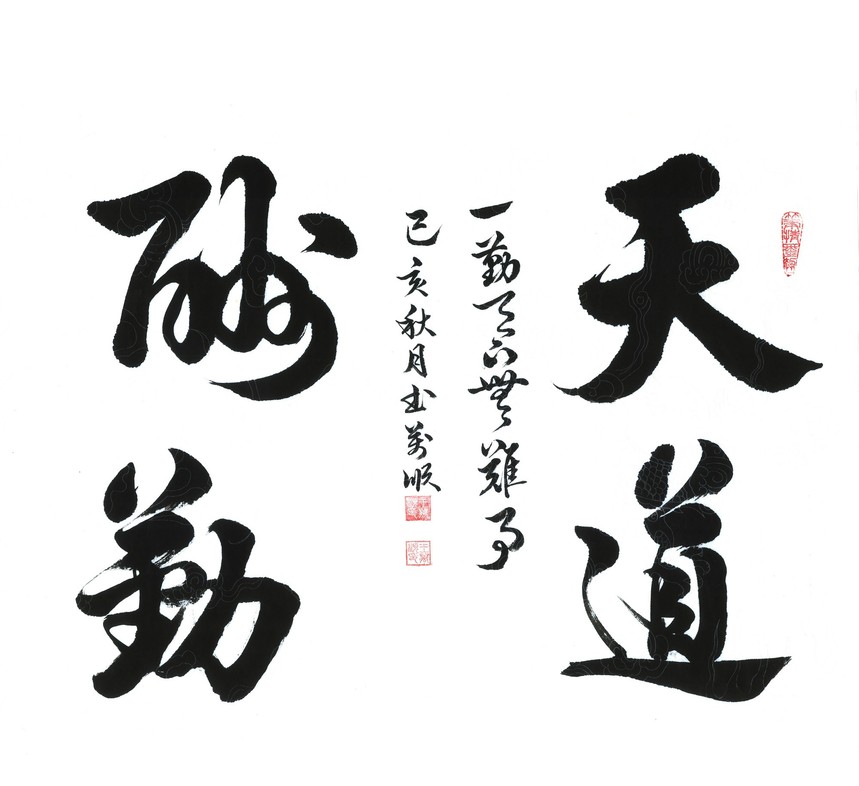 天道
酬勤
一勤天下無難事
己亥秋月書萬順